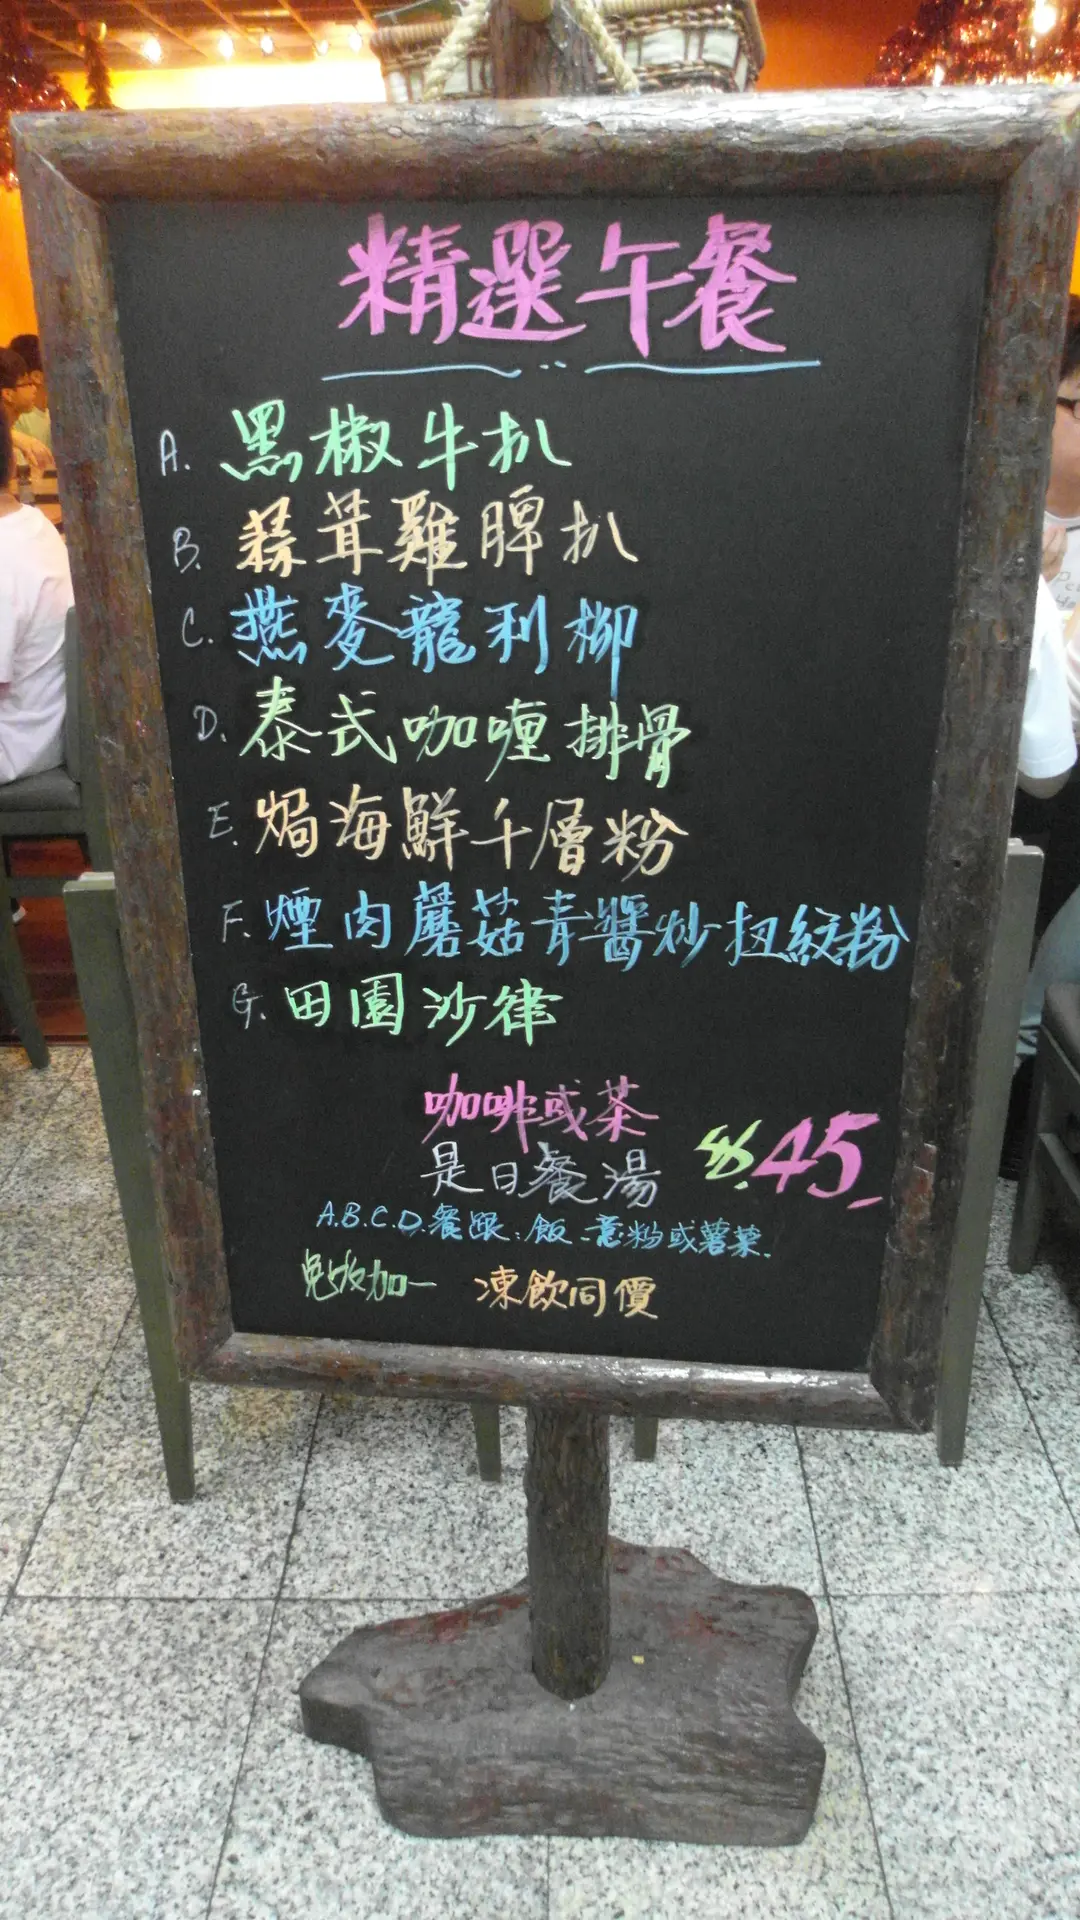 精選午餐
A. 黑椒牛扒
B. 蒜茸雞脾扒
C. 燕麥龍利柳
D. 泰式咖喱排骨
E. 焗海鮮千層粉
F. 煙肉蘑菇青醬炒扭紋粉
G. 田園沙律
咖啡或茶
是日餐湯
$.45
A.B.C.D.餐跟:飯、意粉或薯菜.
免收加一 凍飲同價